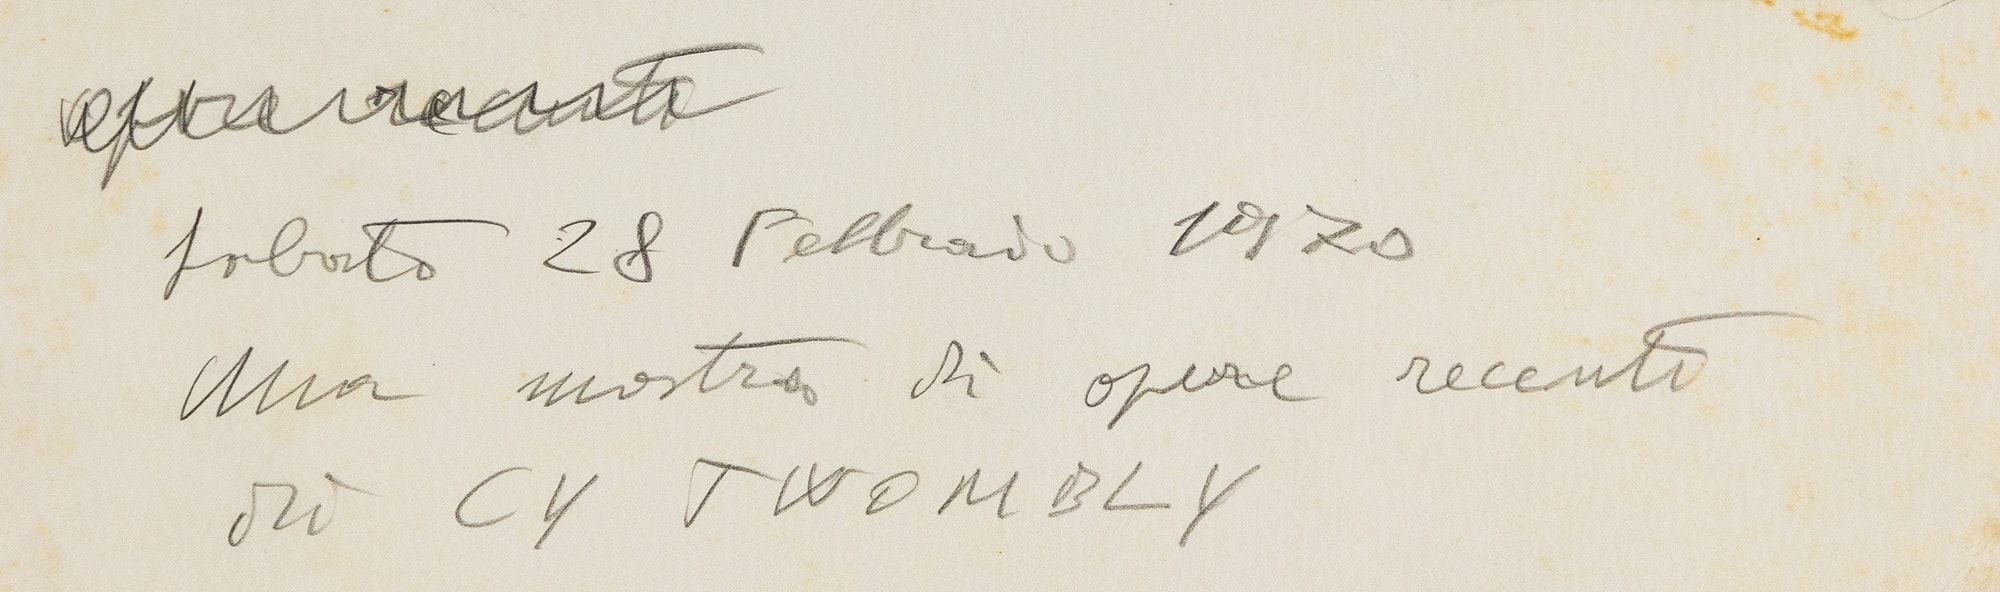 opere recenti
sabato 28 Febbraio 1970
Una mostra di opere recenti
di CY TWOMBLY